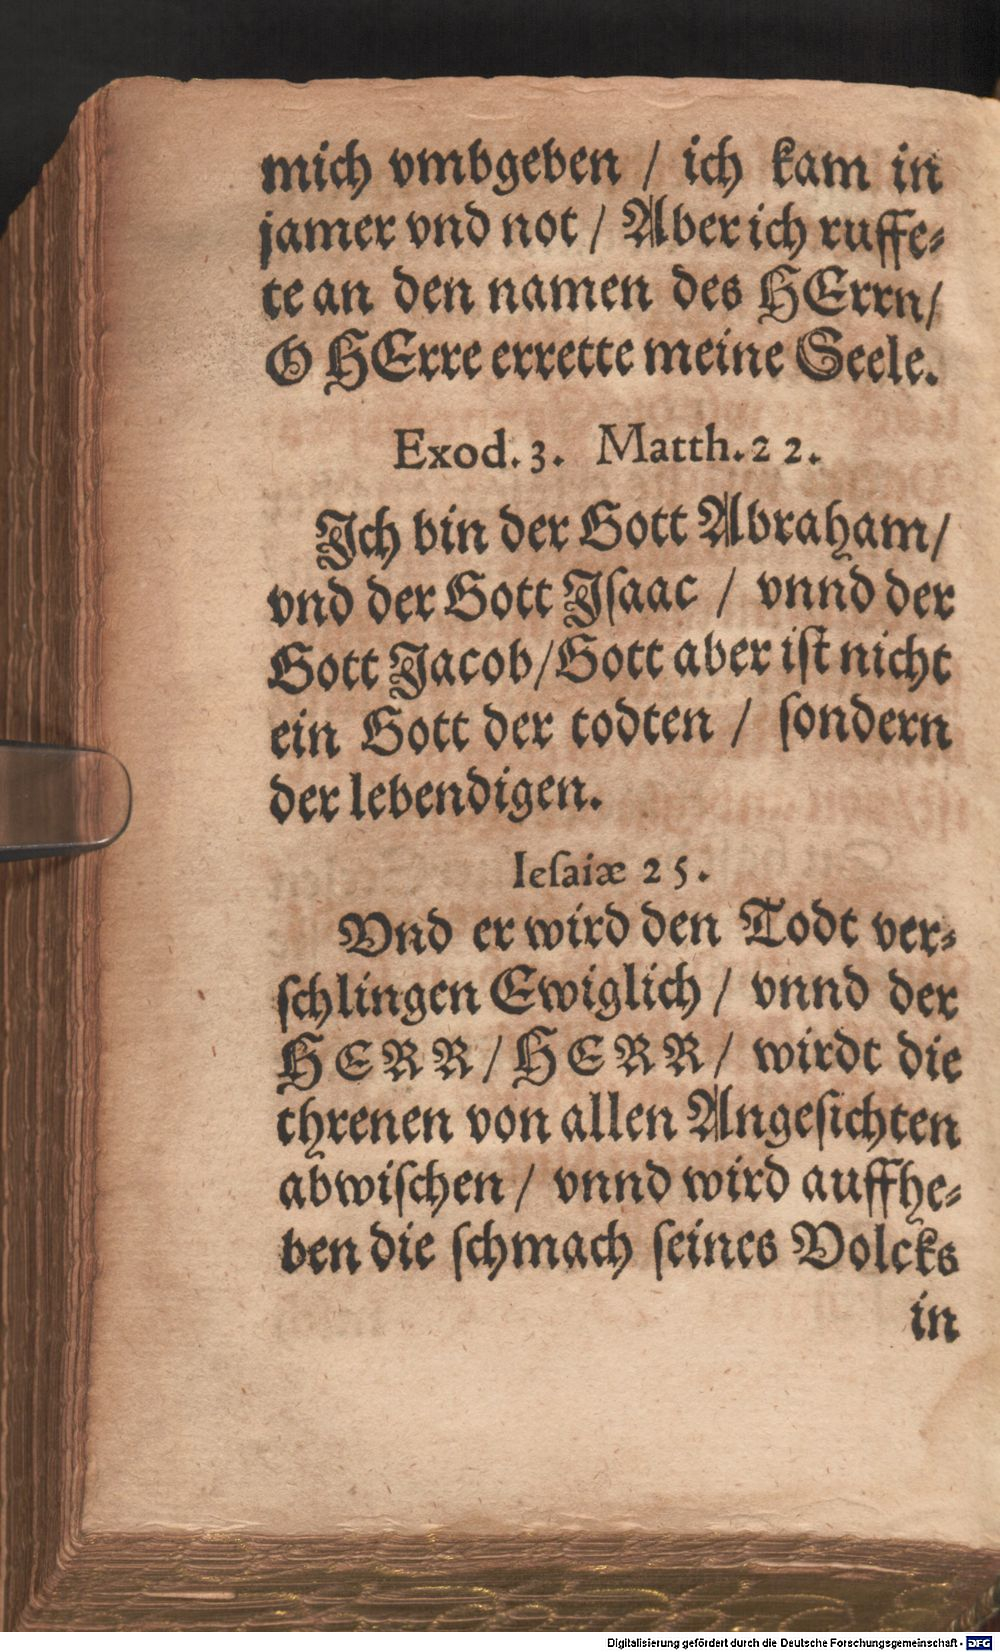 mich vmbgeben / ich kam in
jamer vnd not / Aber ich ruffe⸗
te an den namen des HErrn/
O HErre errette meine Seele.
Exod. 3. Matth. 22.
Jch bin der Gott Abraham/
vnd der Gott Jſaac / vnnd der
Gott Jacob/Gott aber iſt nicht
ein Gott der todten / ſondern
der lebendigen.
Ieſaiæ 25.
Vnd er wird den Todt ver⸗
ſchlingen Ewiglich / vnnd der
HERR/HERR/ wirdt die
threnen von allen Angeſichten
abwiſchen / vnnd wird auffhe⸗
ben die ſchmach ſeines Volcks
in
Digitalisierung gefördert durch die Deutsche Forschungsgemeinschaft - DFG